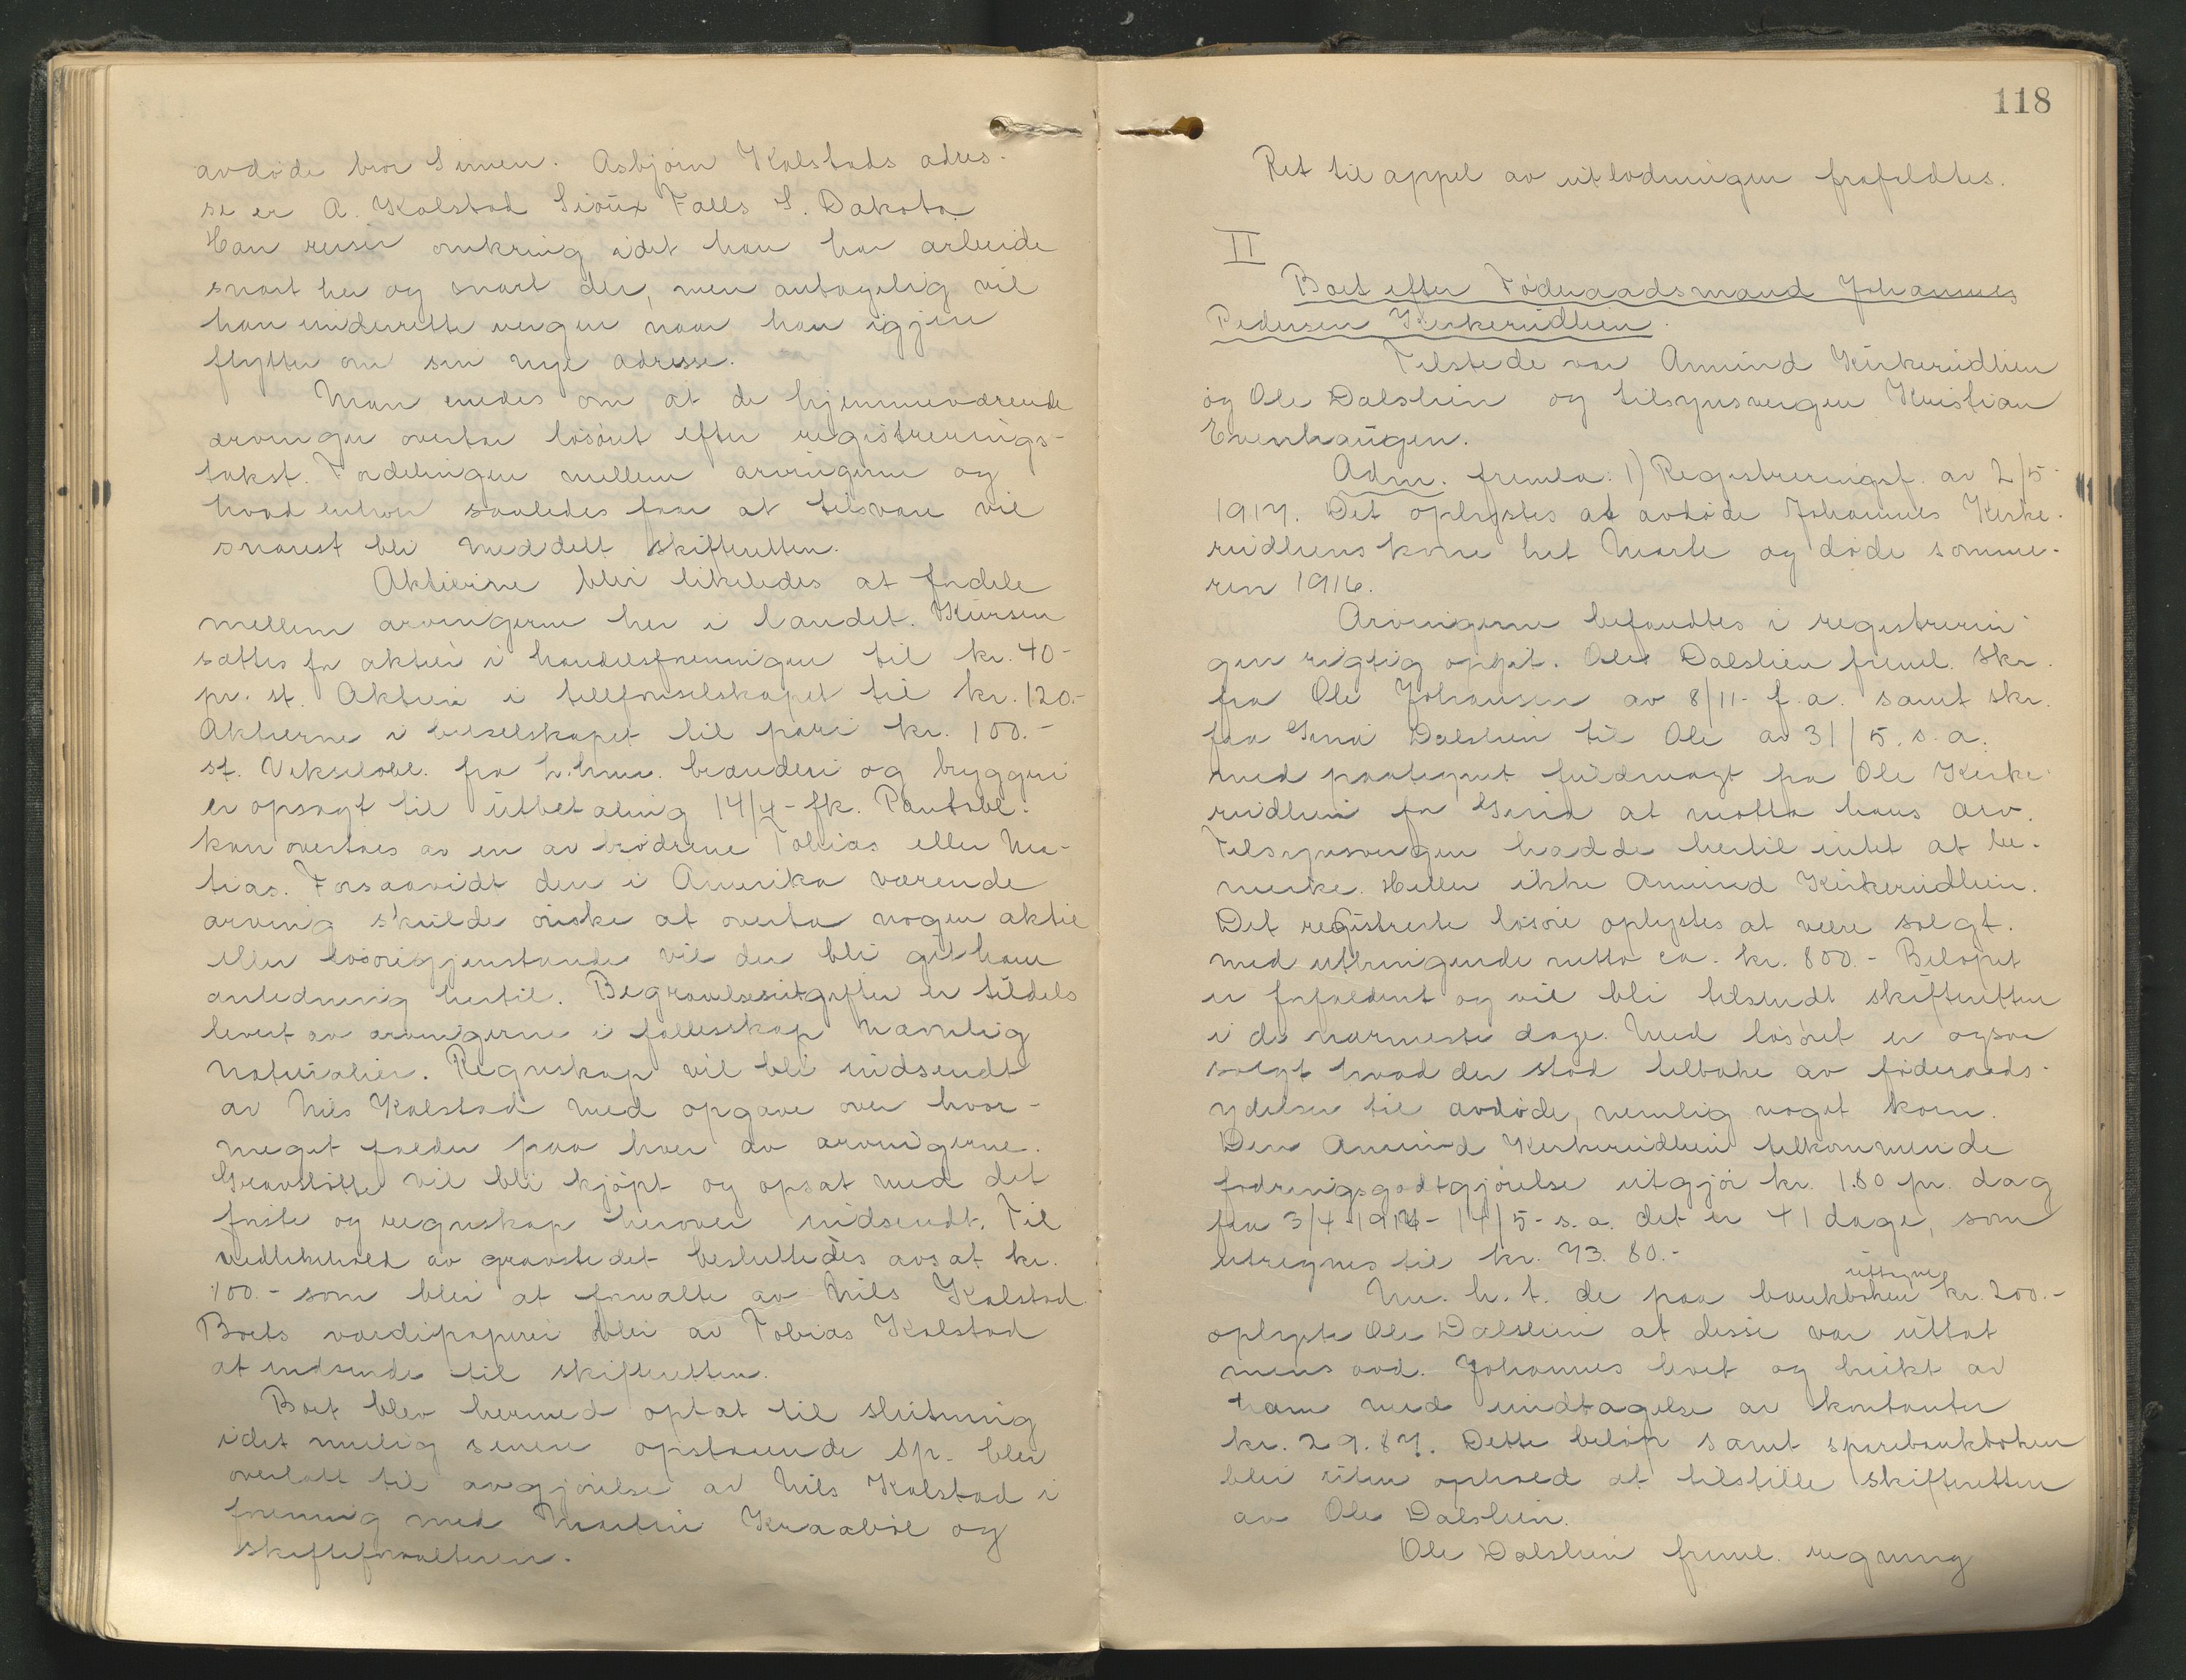 avdøde bror Simen. Asbjørn Kolstads adres-
se er A. Kolstad Sioux Falls S. Dakota.
Han reiser omkring idet han har arbeide
snart her og snart der, men antagelig vil
han underrette vergen naar han igjen
flytter om sin nye adresse.
Man enedes om at de hjemmeværende
arvinger overtar løsøret efter registrerings-
takst. Fordelingen mellem arvingerne og
hvad enhver saaledes faar at tilsvare vil
snarest bli meddelt skifteretten.
Aktierne blir likeledes at fordele
mellem arvingerne her i landet. Kursen
sættes for aktier i handelsforeningen til kr. 40-
pr. st. Aktier i telefonselskapet til kr. 120.-
Aktierne i bilselskapet til pari kr. 100.-
st. Vekselobl. fra L.hmr. brænderi og bryggeri
er opsagt til utbetaling 14/4- fk. Pantobl.
kan overtaes av en av brødrene Tobias eller Ma-
tias. Forsaavidt den i Amerika værende
arving skulde ønske at overta nogen aktie
eller løsøregjenstande vil der bli git ham
anledning hertil. Begravelsesutgifter er tildels
levert av arvingerne i fællesskap næmlig
naturalier. Regnskap vil bli indsendt
av Nils Kolstad med opgave over hvor-
meget falder paa hver av arvingerne.
Gravstøtte vil bli kjøpt og opsat med det
første og regnskap herover indsendt. Til
vedlikehold av gravstedet besluttedes avsat kr.
100.- som blir at forvalte av Nils Kolstad.
Boets værdipapirer blir av Tobias Kolstad
at indsende til skifteretten.
Boet blev hermed optat til slutning
idet mulig senere opstaaende sp. blev
overlatt til avgjørelse av Nils Kolstad i
forening med Martin Kraabøl og
skifteforvalteren.
118
Ret til appel av utlodningen frafaldtes.
II
Boet efter Føderaadsmand Johannes
Pedersen Kirkerudlien.
Tilstede var Amund Kirkerudlien
og Ole Dalslien og tilsynsvergen Kristian
Evenhaugen.
Adm. fremla: 1) Registreringsf. av 2/5-
1917. Det oplystes at avdøde Johannes Kirke-
rudliens kone het Marte og døde somme-
ren 1916.
Arvingerne befandtes i registrerin-
gen rigtig opgit. Ole Dalslien freml. skr.
fra Ole Johansen av 8/11- f.a. samt skr.
fra Gina Dalslien til Ole av 31/5. s.a.
med paategnet fuldmagt fra Ole Kirke-
rudlien for Gina at motta hans arv.
Tilsynsvergen hadde hertil intet at be-
merke. Heller ikke Amund Kirkerudlien.
Det registrerte løsøre oplystes at være solgt.
med utbringende netto ca. kr. 800.- Beløpet
er forfaldent og vil bli tilsendt skifteretten
i de nærmeste dage. Med løsøret er ogsaa
solgt hvad der stod tilbake av føderaads-
ydelser til avdøde, nemlig noget korn.
Den Amund Kirkerudlien tilkommende
fodringsgodtgjørelse utgjør kr. 1.80 pr. dag
fra 3/4-1917- 14/5- s.a. det er 41 dage, som
utregnes til kr. 73.80.-
uttagne
M. h. t. de paa bankboken kr. 200.-
oplyste Ole Dalslien at disse var uttat
mens avd. Johannes levet og brukt av
ham med undtagelse av kontanter
kr. 29.87. Dette beløp samt sparebankboken
blir uten ophold at tilstille skifteretten
av Ole Dalslien.
Ole Dalslien freml. regning